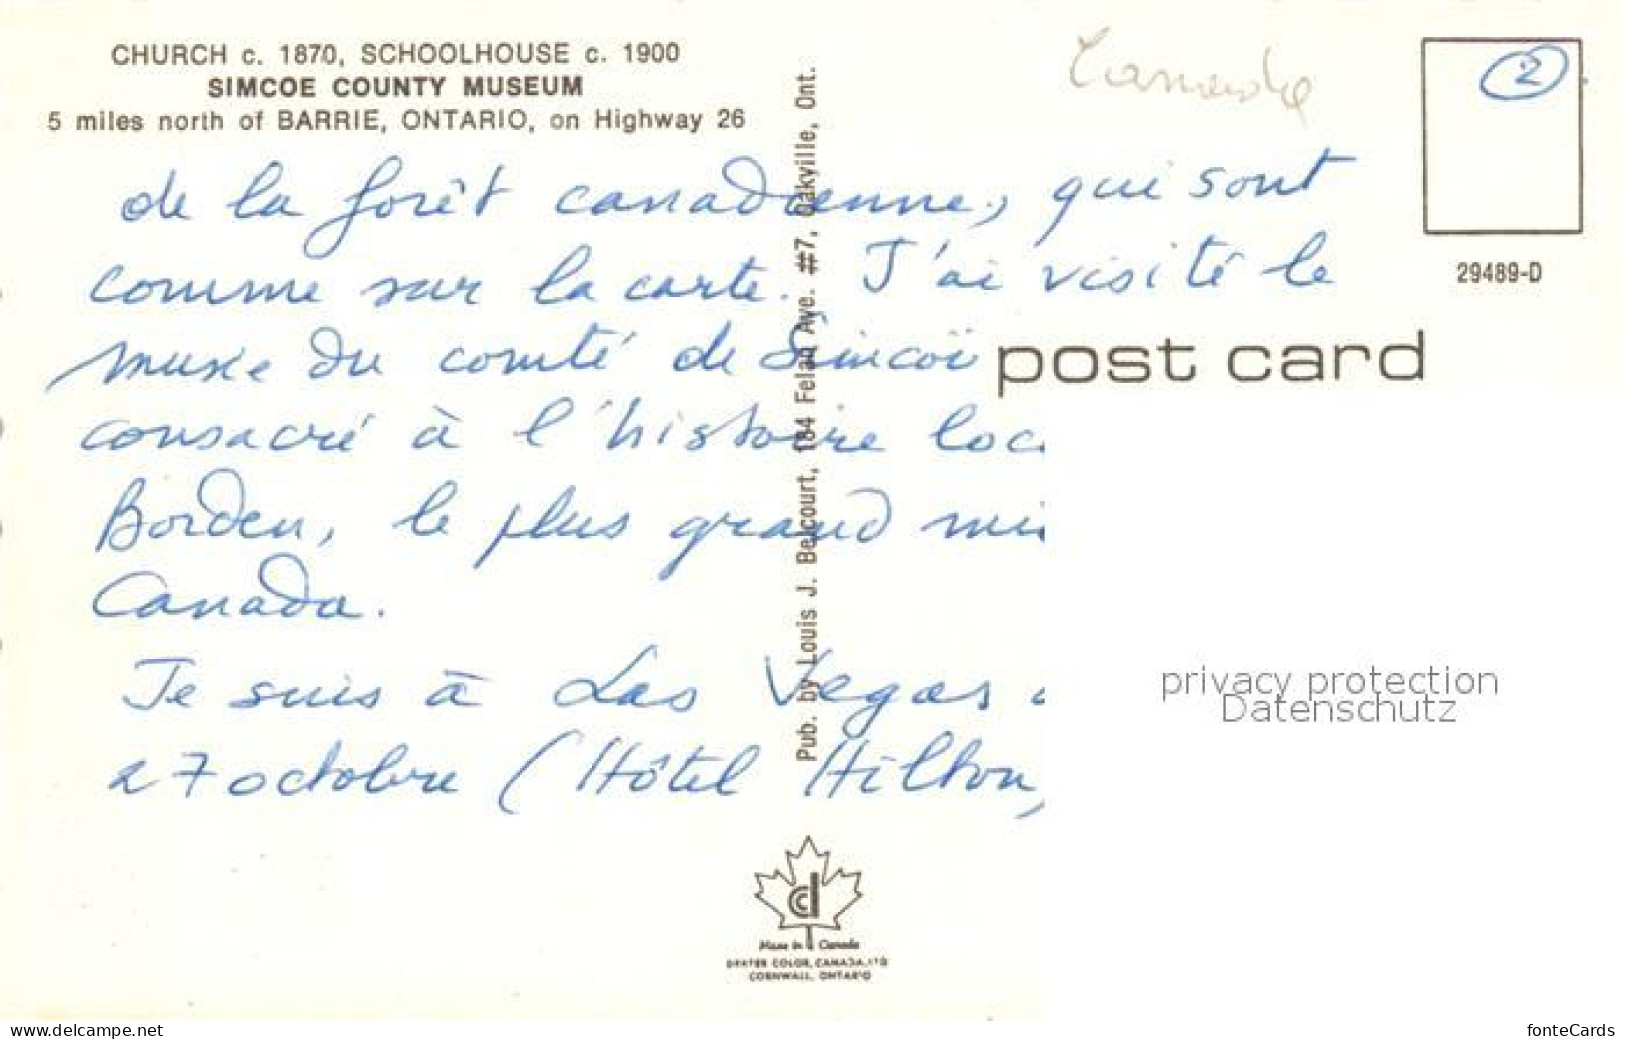 CHURCH c. 1870, SCHOOLHOUSE c. 1900
SIMCOE COUNTY MUSEUM
5 miles north of BARRIE, ONTARIO, on Highway 26
2
29489-D
de la forêt canadienne, qui sont
comme sur la carte. J'ai visité le
musée du comté de Simcoë
post card
consacré à l'histoire loc
Borden, le plus grand mi
Canada.
Je suis à Las Vegas
27 octobre (Hôtel Hilton,
Pub. by Louis J. Belcourt, 184 Felan Ave. #7, Oakville, Ont.
privacy protection
Datenschutz
Made in Canada
DEXTER COLOR, CANADA, LTD
CORNWALL, ONTARIO
www.delcampe.net
fonteCards